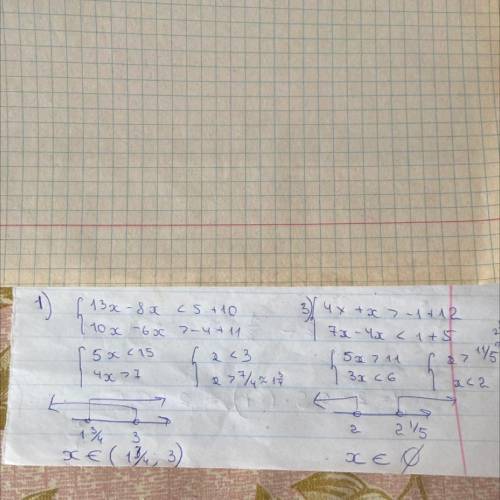 1) { 13x - 8x < 5 + 10
10x - 6x > -4 + 11
{ 5x < 15
4x > 7
{ x < 3
x > 7/4 = 1 3/4
1 3/4 3
x ∈ (1 3/4; 3)
3) { 4x + x > -1 + 12
7x - 4x < 1 + 5
{ 5x > 11
3x < 6
{ x > 11/5
x < 2
2 2 1/5
x ∈ ∅